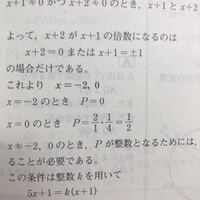 x+1≠0 かつ x+2≠0 のとき, x+1 と x+2
よって, x+2 が x+1 の倍数になるのは
x+2=0 または x+1=±1
の場合だけである。
これより x=−2, 0
x=−2 のとき P=0
x=0 のとき P=2/1・1/4=1/2
x≠−2, 0 のとき, P が整数となるためには,
ることが必要である。
この条件は整数 k を用いて
5x+1=k(x+1)